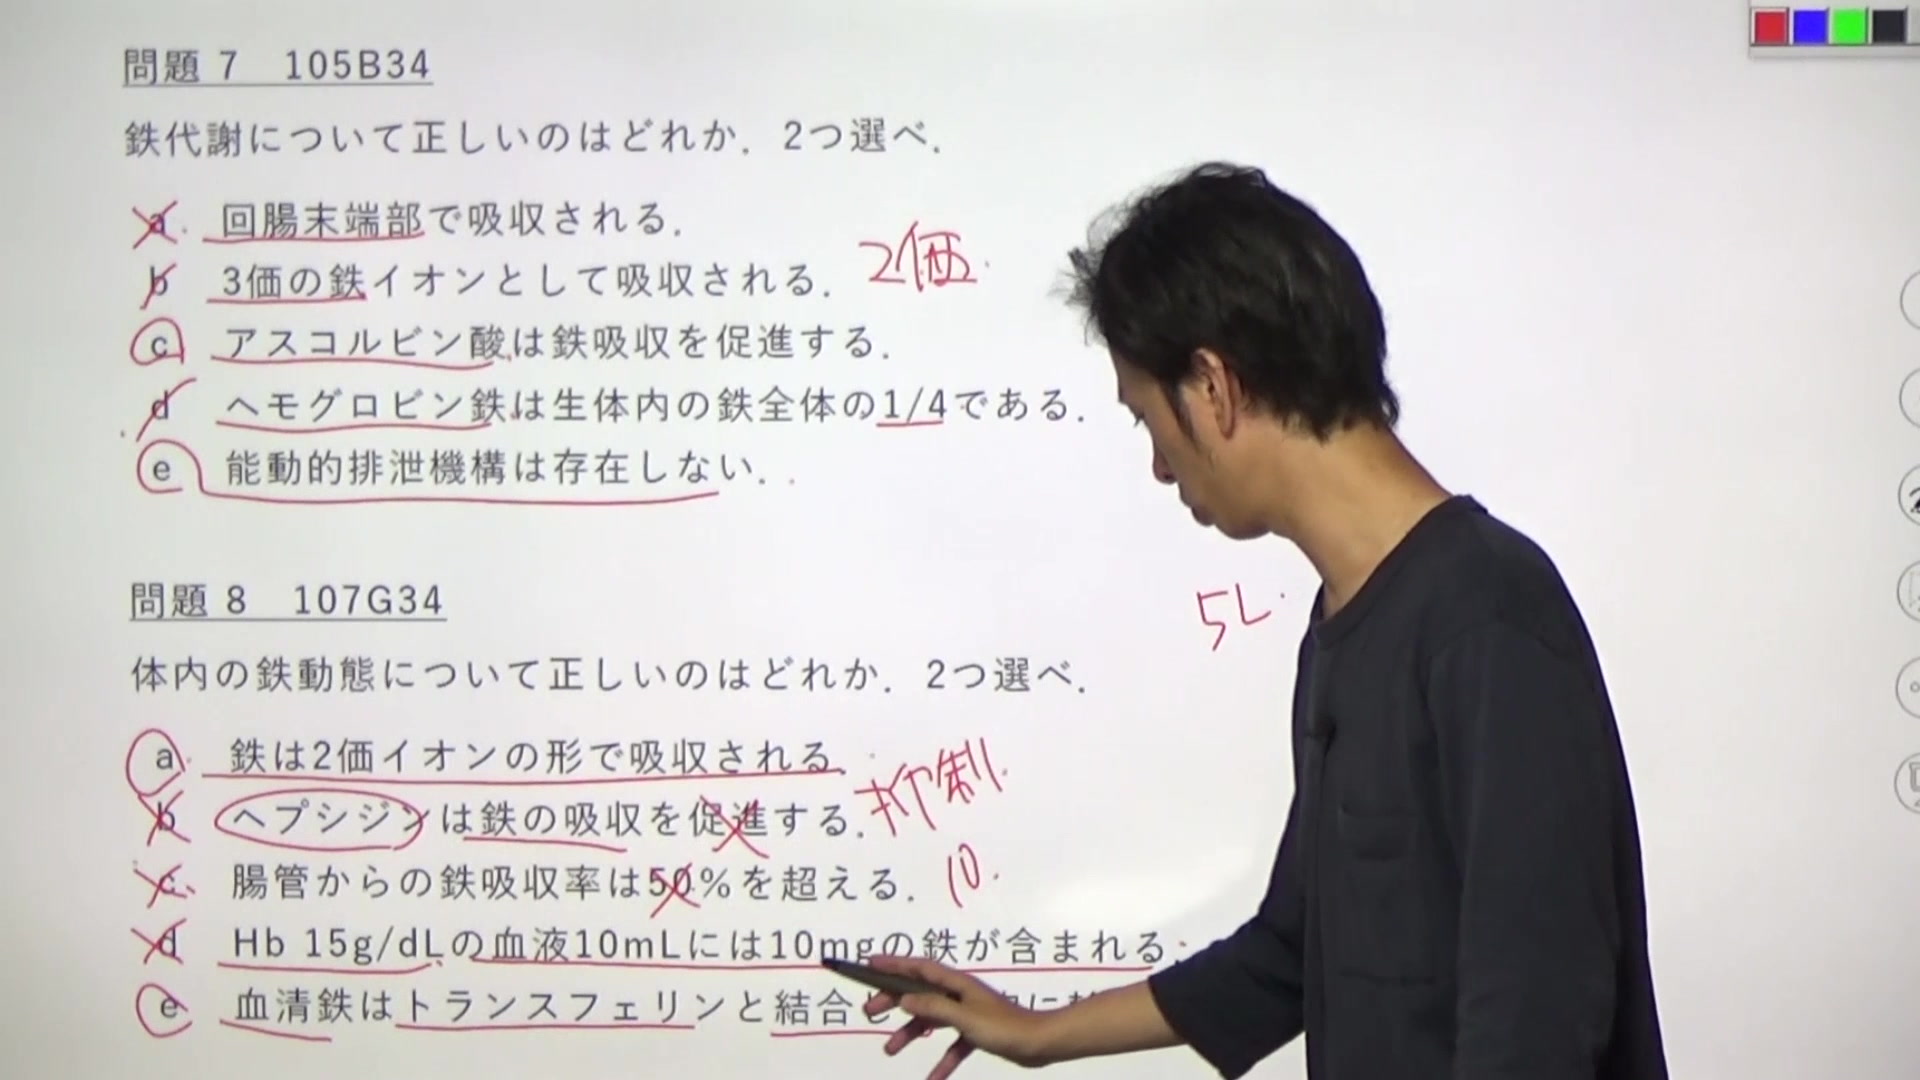 問題 7　105B34
鉄代謝について正しいのはどれか．2つ選べ．
a．回腸末端部で吸収される．
b　3価の鉄イオンとして吸収される．2価
c　アスコルビン酸は鉄吸収を促進する．
d　ヘモグロビン鉄は生体内の鉄全体の1/4である．
e　能動的排泄機構は存在しない．
5L
問題 8　107G34
体内の鉄動態について正しいのはどれか．2つ選べ．
a．鉄は2価イオンの形で吸収される
b　ヘプシジンは鉄の吸収を促進する．抑制
c．腸管からの鉄吸収率は50％を超える．10.
d　Hb 15g/dLの血液10mLには10mgの鉄が含まれる．
e　血清鉄はトランスフェリンと結合し